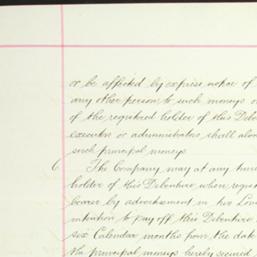 or be affected by express notice of
any other person to such moneys or
of the registered holder of this Deben
executors or administrators shall alone
such principal moneys
6 The Company may at any time
holder of this Debenture when regis
bearer by advertisement in two Lon
intention to pay off this Debenture
six Calendar months from the dat
the principal moneys hereby secured